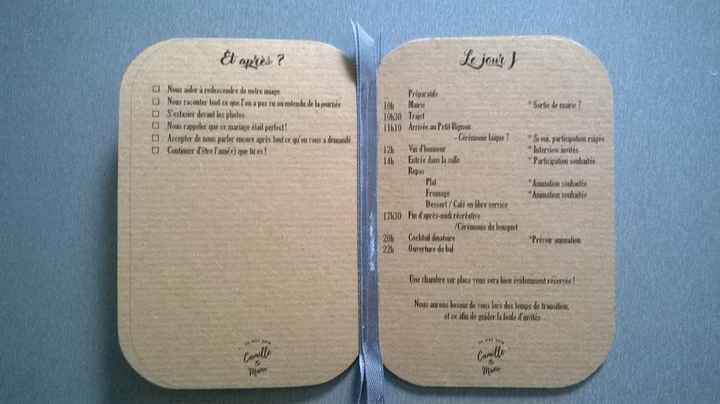 Et après ?
Nous aider à redescendre de notre nuage
Nous raconter tout ce que l'on a pas vu ou entendu de la journée
S'extasier devant les photos
Nous rappeler que ce mariage était parfait !
Accepter de nous parler encore après tout ce qu'on vous a demandé
Continuer d'être l'ami(e) que tu es !
Camille
&
Le jour J
Préparatifs
10h Mairie * Sortie de mairie ?
10h30 Trajet
11h10 Arrivée au Petit Vignon
- Cérémonie laïque ? * Si oui, participation exigée
12h Vin d'honneur * Interview invités
14h Entrée dans la salle * Participation souhaitée
Repas
Plat *Animation souhaitée
Fromage *Animation souhaitée
Dessert / Café en libre service
17h30 Fin d'après-midi récréative
/Cérémonie du bouquet
20h Cocktail dînatoire *Prévoir animation
22h Ouverture du bal
Une chambre sur place vous sera bien évidemment réservée !
Nous aurons besoin de vous lors des temps de transition,
et ce afin de guider la foule d'invités
Camille
&